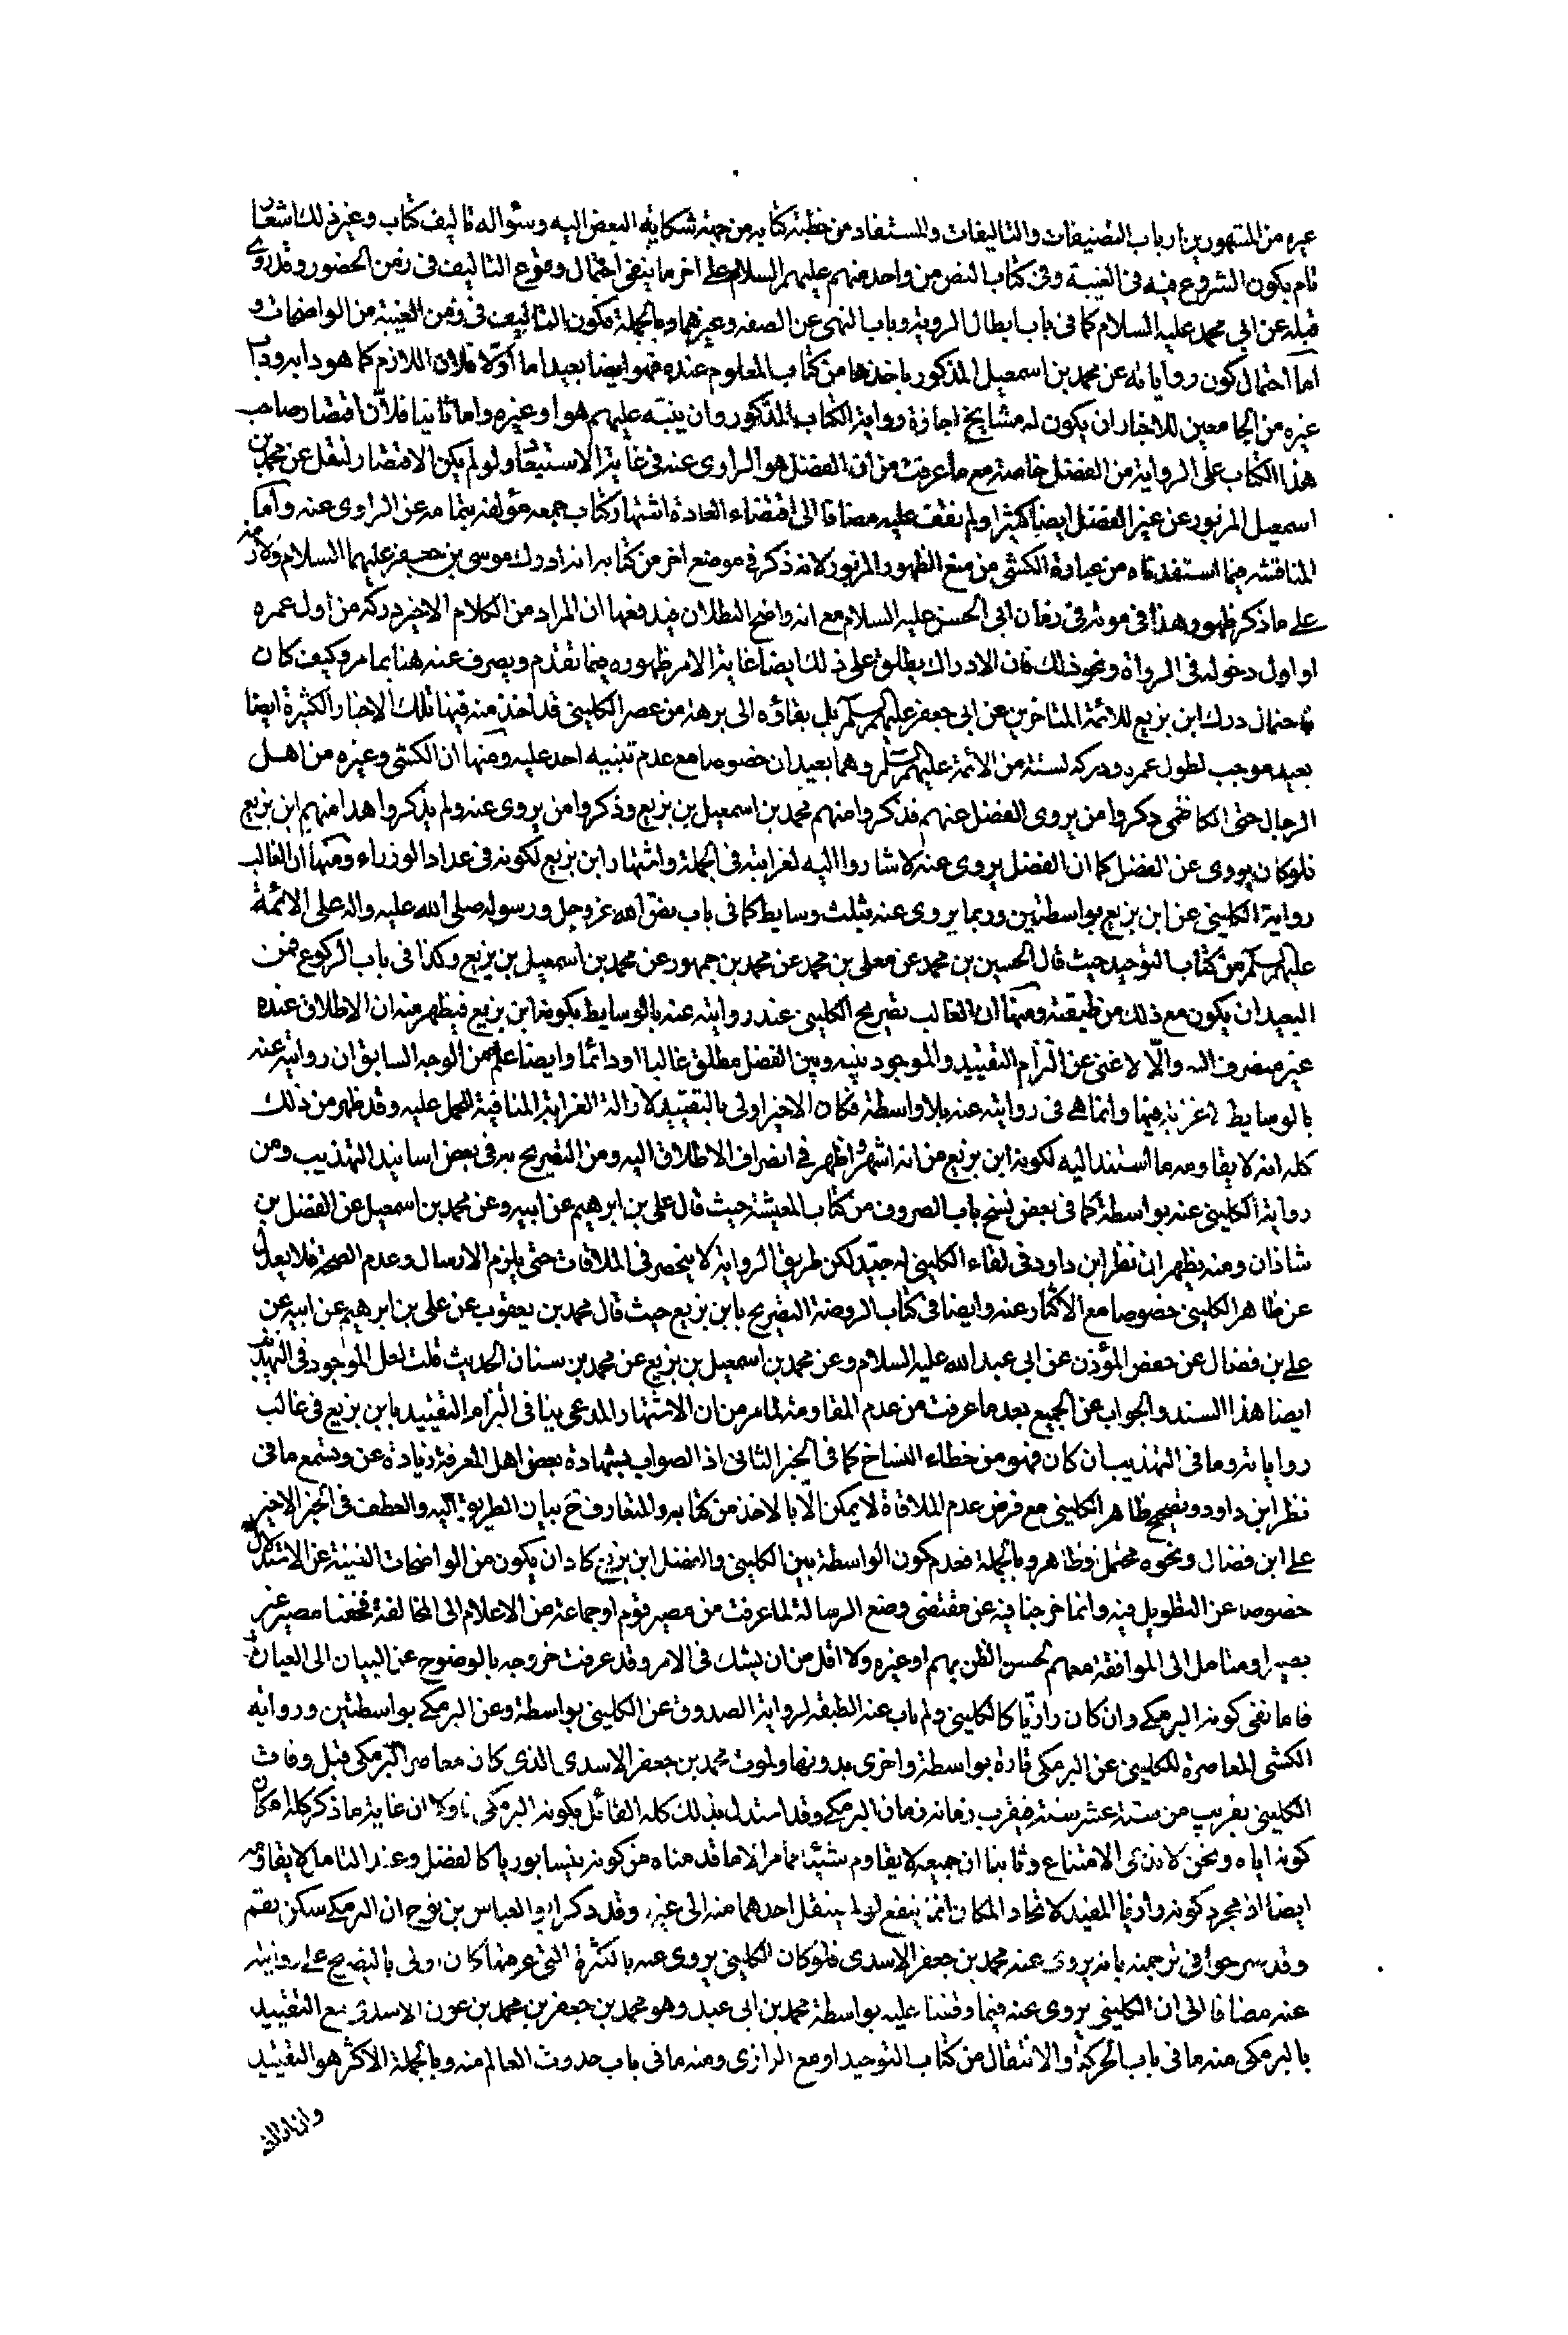 غيره من المشهورين ارباب التصنيفات والتاليفات والمستفاد من خطبة كتابه من جهة شكايه البعض اليه وسؤاله تاليف كتاب وغير ذلك اشعار
تام بكون الشروع فيه فى الغيبة وفى كتاب النص من واحد منهم عليهم السلام على اخر ما ينفى احتمال وقوع التاليف فى زمن الحضور وقد روى
قبله عن ابي محمد عليه السلام كما فى باب ابطال الروية وباب النهى عن الصفه وغيرهما وبالجملة فكون التاليف فى زمن الغيبة من الواضحات و
اما احتمال كون رواياته عن محمد بن اسمعيل المذكور ياخذها من كتابه المعلوم عنده فهو ايضا بعيد اما اوّلا فلان اللازم كما هو دابه وداب
غيره من الجامعين للاخبار ان يكون له مشايخ اجازة ورواية الكتاب المذكور وان ينبّه عليهم هو او غيره واما ثانيا فلانّ اقتصار صاحب
هذا الكتاب على الرواية من الفضل خاصة مع ما عرفت من ان الفضل هو الراوى عنه فى غاية الاستبعاد ولو لم يكن الاقتصار لنقل عن محمد بن
اسمعيل المزبور عن غير الفضل ايضا كثيرا ولم نقف عليه مضافا الى اقتضاء العادة اشتهار كتاب جمعه مؤلفه بتمامه عن الراوى عنه وأما
المناقشه فيما استفدناه من عبارة الكشى من منع الظهور المزبور لانه ذكر فى موضع اخر من كتابه انه ادرك موسى بن جعفر عليهما السلام ولازمه
على ما ذكر ظهور هذا فى موته فى زمان ابى الحسن عليه السلام مع انه واضح البطلان فيدفعها ان المراد من الكلام الاخير دركه من اول عمره
او اول دخوله فى الرواة ونحو ذلك فان الادراك يطلق على ذلك ايضا غاية الامر ظهوره فيما تقدم ويصرف عنه هنا بما مر وكيف كان
فاحتمال درك ابن بزيع للائمة المتاخرين عن ابى جعفر عليهم السلم بل بقاؤه الى برهة من عصر الكلينى قد اخذ منه فيها تلك الاخبار الكثيرة ايضا
بعيد موجب لطول عمره ودركه لستة من الأئمة عليهم السلم وهما بعيدان خصوصا مع عدم تنبيه احد عليه ومنها ان الكشى وغيره من اهل
الرجال حتى الكاظمى ذكروا من يروى الفضل عنهم فذكروا منهم محمد بن اسمعيل بن بزيع وذكروا من يروى عنه ولم يذكروا هذا منهم ابن بزيع
فلو كان يروى عن الفضل كما ان الفضل يروى عنه لاشاروا اليه لغرابته فى الجملة واشتهار ابن بزيع لكونه فى عداد الوزراء ومنها ان الغالب
رواية الكلينى عن ابن بزيع بواسطتين وربما يروى عنه بثلث وسايط كما فى باب نصّ الله عز وجل ورسوله صلى الله عليه واله على الائمة
عليهم السلم من كتاب التوحيد حيث قال الحسين بن محمد عن معلى بن محمد عن محمد بن جمهور عن محمد بن اسمعيل بن بزيع وكذا فى باب الركوع فمن
البعيد ان يكون مع ذلك من طبقته ومنها ان الغالب تصريح الكلينى عند روايته عنه بالوسايط بكونه ابن بزيع فيظهر منه ان الاطلاق عنده
غير منصرف اليه والّا لا غنى عن الّزام التقييد والموجود بينه وبين الفضل مطلق غالبا او دائما وايضا علم من الوجه السابق ان روايته عنه
بالوسايط لا غرابة فيها وانما هى فى روايته عنه بلا واسطة فكان الاخير اولى بالتقييد لازالة الغرابة المنافية للحمل عليه وقد ظهر من ذلك
كله انه لا يقاومه ما استند اليه لكونه ابن بزيع من انه اشهر واظهر فى انصراف الاطلاق اليه ومن التصريح به فى بعض اسانيد التهذيب ومن
رواية الكلينى عنه بواسطة كما فى بعض نسخ باب الصروف من كتاب المعيشة حيث قال على بن ابرهيم عن ابيه وعن محمد بن اسمعيل عن الفضل بن
شاذان ومنه يظهر ان نظر ابن داود فى لقاء الكلينى له جيّد لكن طريق الرواية لا ينحصر فى الملاقات حتى يلزم الارسال وعدم الصحة فلا يعدل
عن ظاهر الكلينى خصوصا مع الاكثار عنه وايضا فى كتاب الروضة التصريح بابن بزيع حيث قال محمد بن يعقوب عن على بن ابرهيم عن ابيه عن
على بن فضال عن حفص المؤذن عن ابى عبد الله عليه السلام وعن محمد بن اسمعيل بن بزيع عن محمد بن سنان الحديث قلت لعل الموجود فى التهذيب
ايضا هذا السند والجواب عن الجميع بعد ما عرفت من عدم المقاومة لما مر من ان الاشتهار المدعى ينافى ألزام التقييد بابن بزيع فى غالب
رواياته وما فى التهذيب ان كان فهو من خطاء النساخ كما فى الخبر الثانى اذ الصواب بشهادة بعض اهل المعرفة زيادة عن وستسمع ما فى
نظر ابن داود وتصحيح ظاهر الكلينى مع فرض عدم الملاقاة لا يمكن الّا بالاخذ من كتابه والمتعارف ح بيان الطريق اليه والعطف فى الخبر الاخير
على ابن فضال ونحوه محتمل وظاهر وبالجملة فعدم كون الواسطة بين الكلينى والفضل ابن بزيع كاد ان يكون من الواضحات الغنية عن الاستدلال
خصوصا عن التطويل فيه وانما خرجنا فيه عن مقتضى وضع الرسالة لما عرفت من مصير قوم او جماعة من الاعلام الى المخالفة فخفنا مصير غير
بصير او متامل الى الموافقة معهم لحسن الظن بهم او غيره ولا اقل من ان يشك فى الامر وقد عرفت خروجه بالوضوح عن البيان الى العيان
فاما نفى كونه البرمكى وان كان رازيّا كالكلينى ولم ياب عنه الطبقه لرواية الصدوق عن الكلينى بواسطة وعن البرمكى بواسطتين ورواية
الكشى المعاصرة للكلينى عن البرمكى تارة بواسطة واخرى بدونها ولموت محمد بن جعفر الاسدى الذى كان معاصر البرمكى قبل وفات
الكلينى بقريب من ستة عشر سنة فيقرب زمانه زمان البرمكى وقد استدل بذلك كله القائل بكونه البرمكى فاولا ان غاية ما ذكر كله امكان
كونه اياه ونحن لا ندعى الامتناع وثانيا ان جميعه لا يقاوم شيئا مما مر الا ما قدمناه من كونه نيسابوريا كالفضل وعند التامل لا يقاومه
ايضا اذ مجرد كونه رازيا المفيد لاتحاد المكان انما ينفع لو لم ينتقل احدهما منه الى غيره وقد ذكر ابو العباس بن نوح ان البرمكى سكن بقم
وقد صرحوا فى ترجمته بانه يروى عنه محمد بن جعفر الاسدى فلو كان الكلينى يروى عنه بالكثرة التى عرفتها كان اولى بالتصريح على روايته
عنه مضافا الى ان الكلينى يروى عنه فيما وقفنا عليه بواسطة محمد بن ابى عبد وهو محمد بن جعفر بن محمد بن عون الاسدى مع التقييد
بالبرمكى منه ما فى باب الحركة والانتقال من كتاب التوحيد او مع الرازى ومنه ما فى باب حدوث العالم منه وبالجملة الاكثر هو التقييد